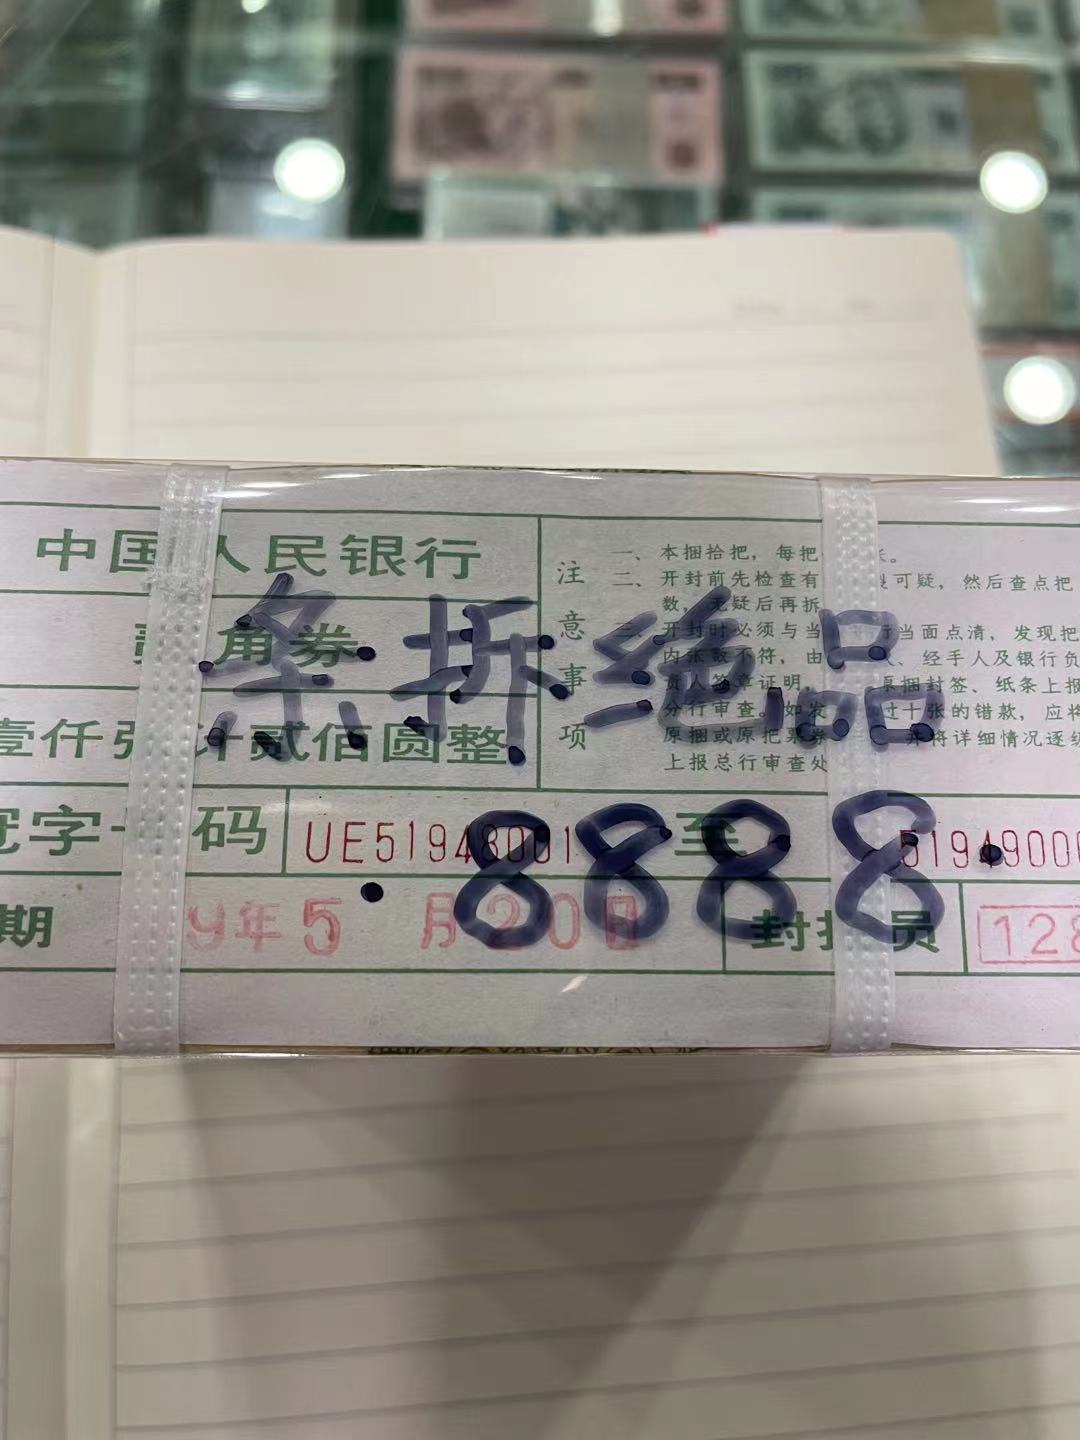 中国人民银行
贰角券
壹仟张计贰佰圆整
冠字号码 UE51948001 至 51949000
期 9年5月20日 封捆员 128
注意事项
一、本捆拾把，每把 张。
二、开封前先检查有 可疑，然后查点把
数，无疑后再拆
三、开封时必须与当 行当面点清，发现把
内张数不符，由 、经手人及银行负
责人签章证明， 原捆封签、纸条上报
分行审查。如发 过十张的错款，应将
原捆或原把票券 并将详细情况逐级
上报总行审查处
条拆绝品
8888